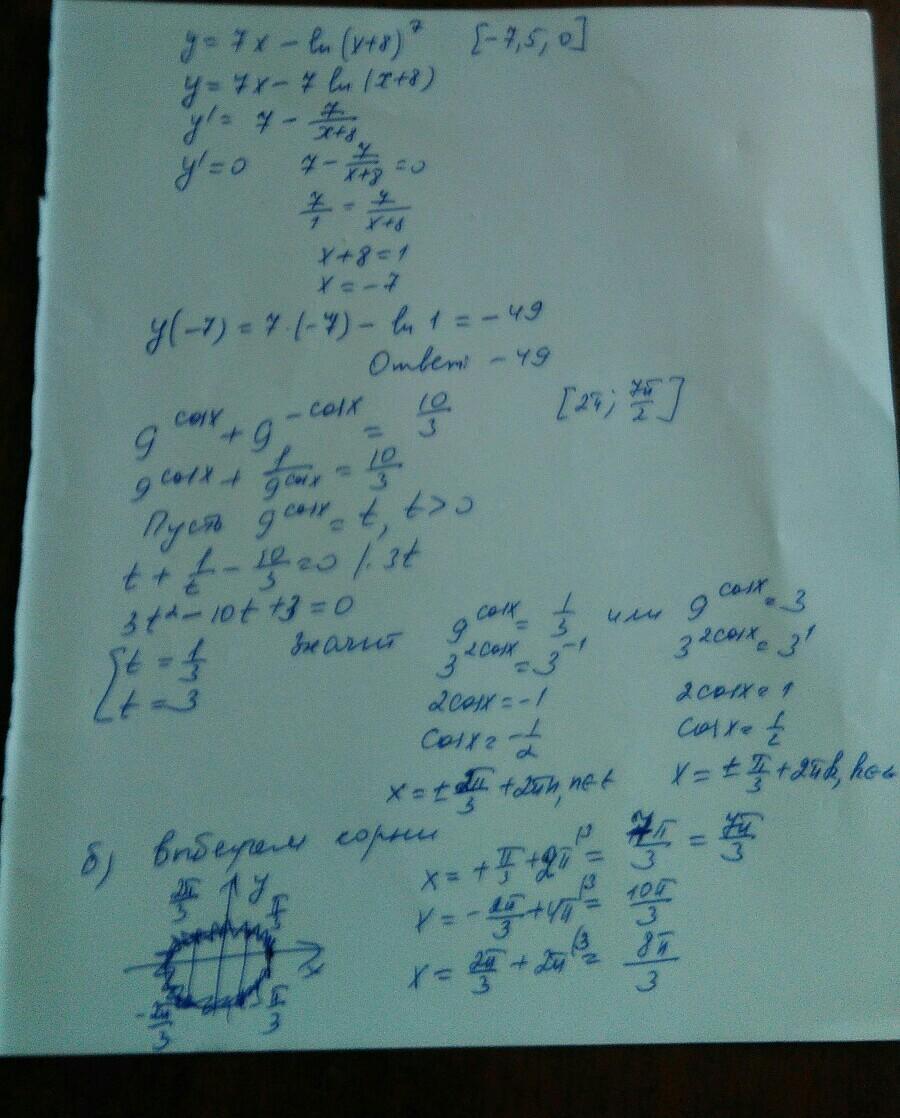 y = 7x − ln(x+8)⁷ [−7,5, 0]
y = 7x − 7 ln(x+8)
y' = 7 − 7/(x+8)
y' = 0 7 − 7/(x+8) = 0
7/1 = 7/(x+8)
x + 8 = 1
x = −7
y(−7) = 7·(−7) − ln 1 = −49
Ответ: −49
9^cosx + 9^−cosx = 10/3 [2π; 7π/2]
9^cosx + 1/9^cosx = 10/3
Пусть 9^cosx = t, t > 0
t + 1/t − 10/3 = 0 |·3t
3t² − 10t + 3 = 0
[t = 1/3 Значит 9^cosx = 1/3 или 9^cosx = 3
t = 3 3^2cosx = 3^−1 3^2cosx = 3^1
2cosx = −1 2cosx = 1
cosx = −1/2 cosx = 1/2
x = ± 2π/3 + 2πn, n∈ x = ± π/3 + 2πk, k∈
б) Выберем корни
x = + π/3 + 2π^(3 = 7π/3 = 7π/3
x = − 2π/3 + 4π^(3 = 10π/3
x = 2π/3 + 2π^(3 = 8π/3
2π/3 y π/3
x
−2π/3 π/3